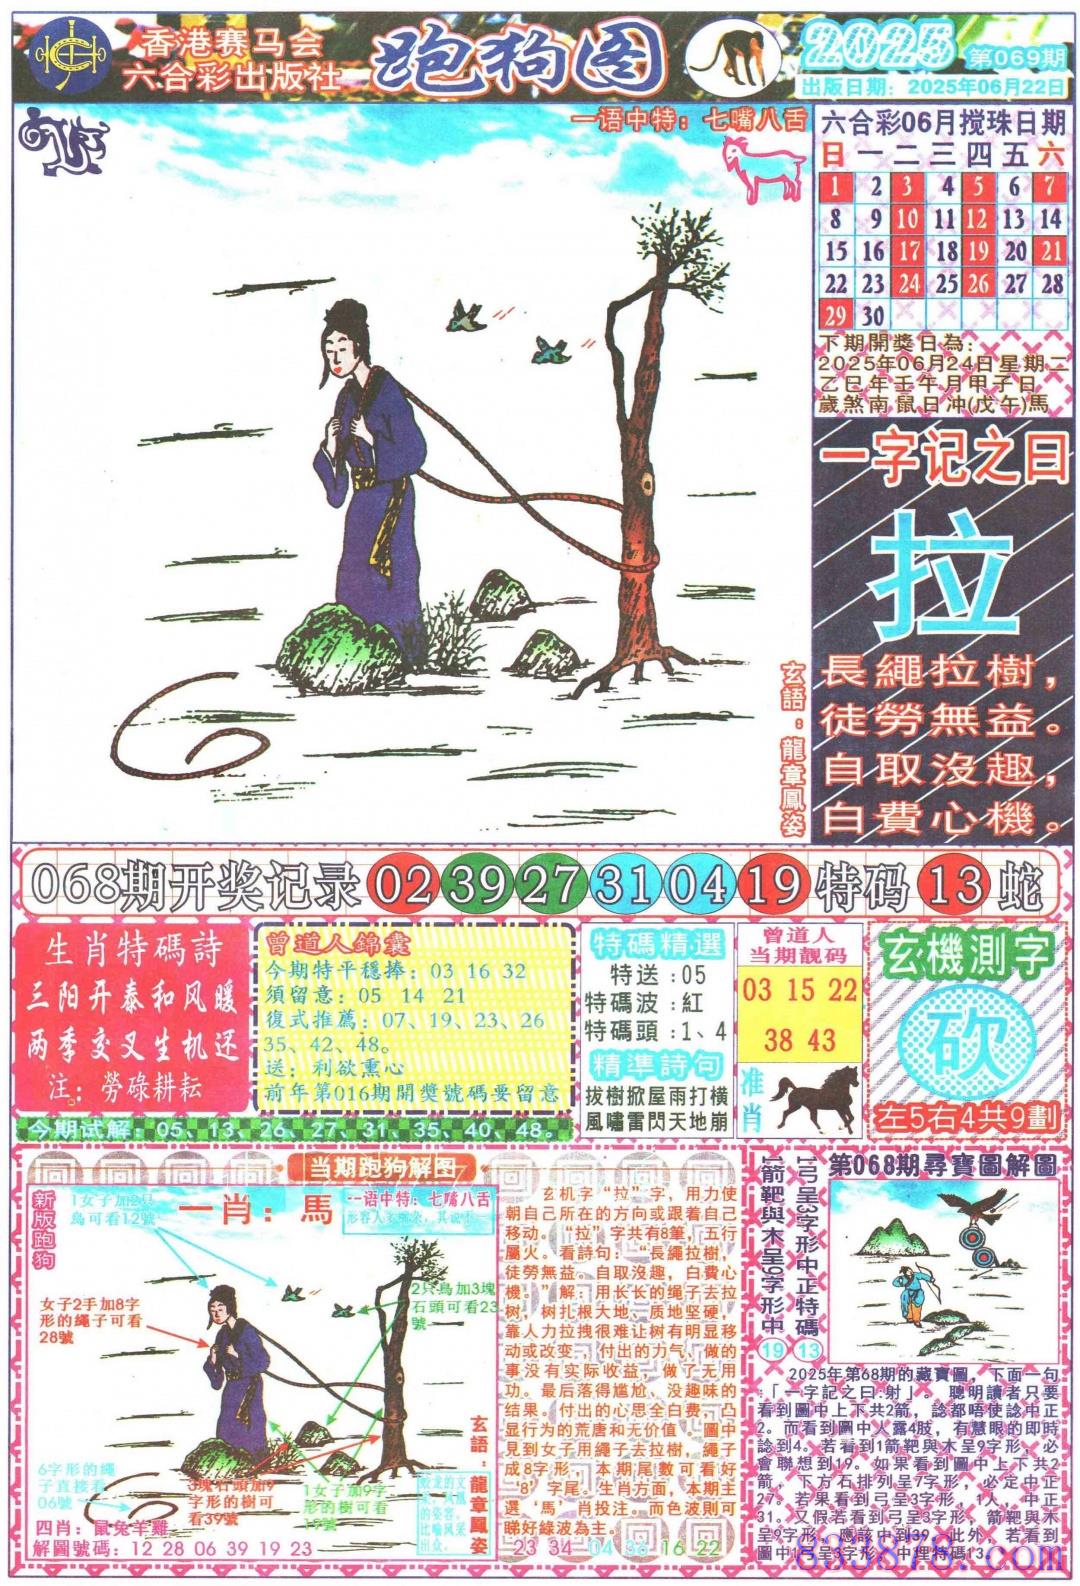 香港赛马会
六合彩出版社
跑狗图
2025
第069期
出版日期：2025年06月22日
一语中特：七嘴八舌
玄語：龍章鳳姿
六合彩06月搅珠日期
日一二三四五六
1 2 3 4 5 6 7
8 9 10 11 12 13 14
15 16 17 18 19 20 21
22 23 24 25 26 27 28
29 30
下期開獎日為：
2025年06月24日星期二
乙巳年壬午月甲子日
歲煞南鼠日冲(戊午)馬
一字记之曰
拉
長繩拉樹，
徒勞無益。
自取沒趣，
白費心機。
068期开奖记录 02 39 27 31 04 19 特码 13 蛇
生肖特碼詩
三阳开泰和风暖
两季交叉生机还
注：勞碌耕耘
曾道人錦囊
今期特平穩捧：03 16 32
須留意：05 14 21
復式推薦：07、19、23、26
35、42、48。
送：利欲熏心
前年第016期開獎號碼要留意
今期试解：05、13、26、27、31、35、40、48。
特碼精選
特送：05
特碼波：紅
特碼頭：1、4
精準詩句
拔樹掀屋雨打橫
風嘯雷閃天地崩
曾道人
当期靓码
03 15 22
38 43
准肖
玄機測字
砍
左5右4共9劃
当期跑狗解图
新版跑狗
1女子加2只
鳥可看12號
一肖：馬
一语中特：七嘴八舌
女子2手加8字
形的繩子可看
28號
2只鳥加3塊
石頭可看23
號
6字形的繩
子直接看
06號
3塊石頭加9
字形的樹可
看39號
1女子加9字
形的樹可看
19號
玄語：龍章鳳姿
四肖：鼠兔羊雞
解圖號碼：12 28 06 39 19 23
玄机字“拉”字，用力使
朝自己所在的方向或跟着自己
移动。“拉”字共有8筆，五行
屬火。看詩句：“長繩拉樹，
徒勞無益。自取沒趣，白費心
機。”解：用长长的绳子去拉
树，树扎根大地、质地坚硬，
靠人力拉拽很难让树有明显移
动或改变，付出的力气、做的
事没有实际收益，做了无用
功。最后落得尴尬、没趣味的
结果。付出的心思全白费，凸
显行为的荒唐和无价值。圖中
見到女子用繩子去拉樹，繩子
成8字形。本期尾數可看好
“8”字尾。生肖方面，本期主
選‘馬’肖投注。而色波則可
睇好綠波為主。
23 34 04 36 16 22
1箭靶與木呈9字形中19
1弓呈3字形中正特碼13
第068期尋寶圖解圖
2025年第68期的藏寶圖，下面一句
：「一字記之曰:射」。聰明讀者只要
看到圖中上下共2箭，諗都唔使諗中正
2。而看到圖中火露4肢，有慧眼的即時
諗到4。若看到1箭靶與木呈9字形，必
會聯想到19。如果看到圖中上下共2
箭，下方石排列呈7字形，必定中正
27。若果看到弓呈3字形，1人，中正
31。又假若看到弓呈3字形，箭靶與木
呈9字形，應該中到39。此外，若看到
圖中1弓呈3字形，中埋特碼13。
835878.com